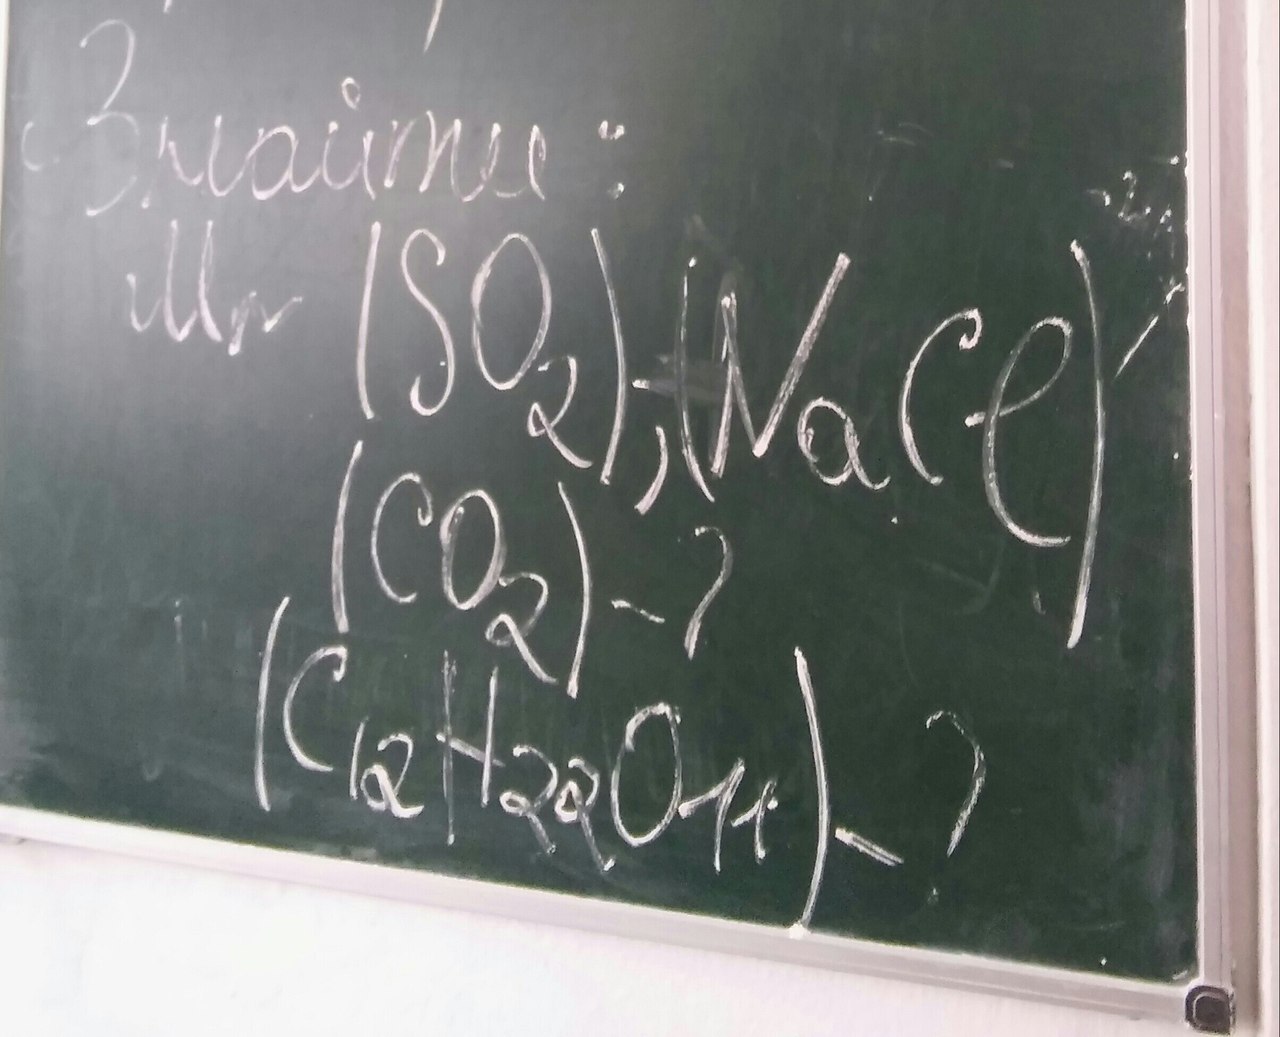 Знайти:
Mr (SO₂), (NaCl)
(CO₂) - ?
(C₁₂H₂₂O₁₁) - ?